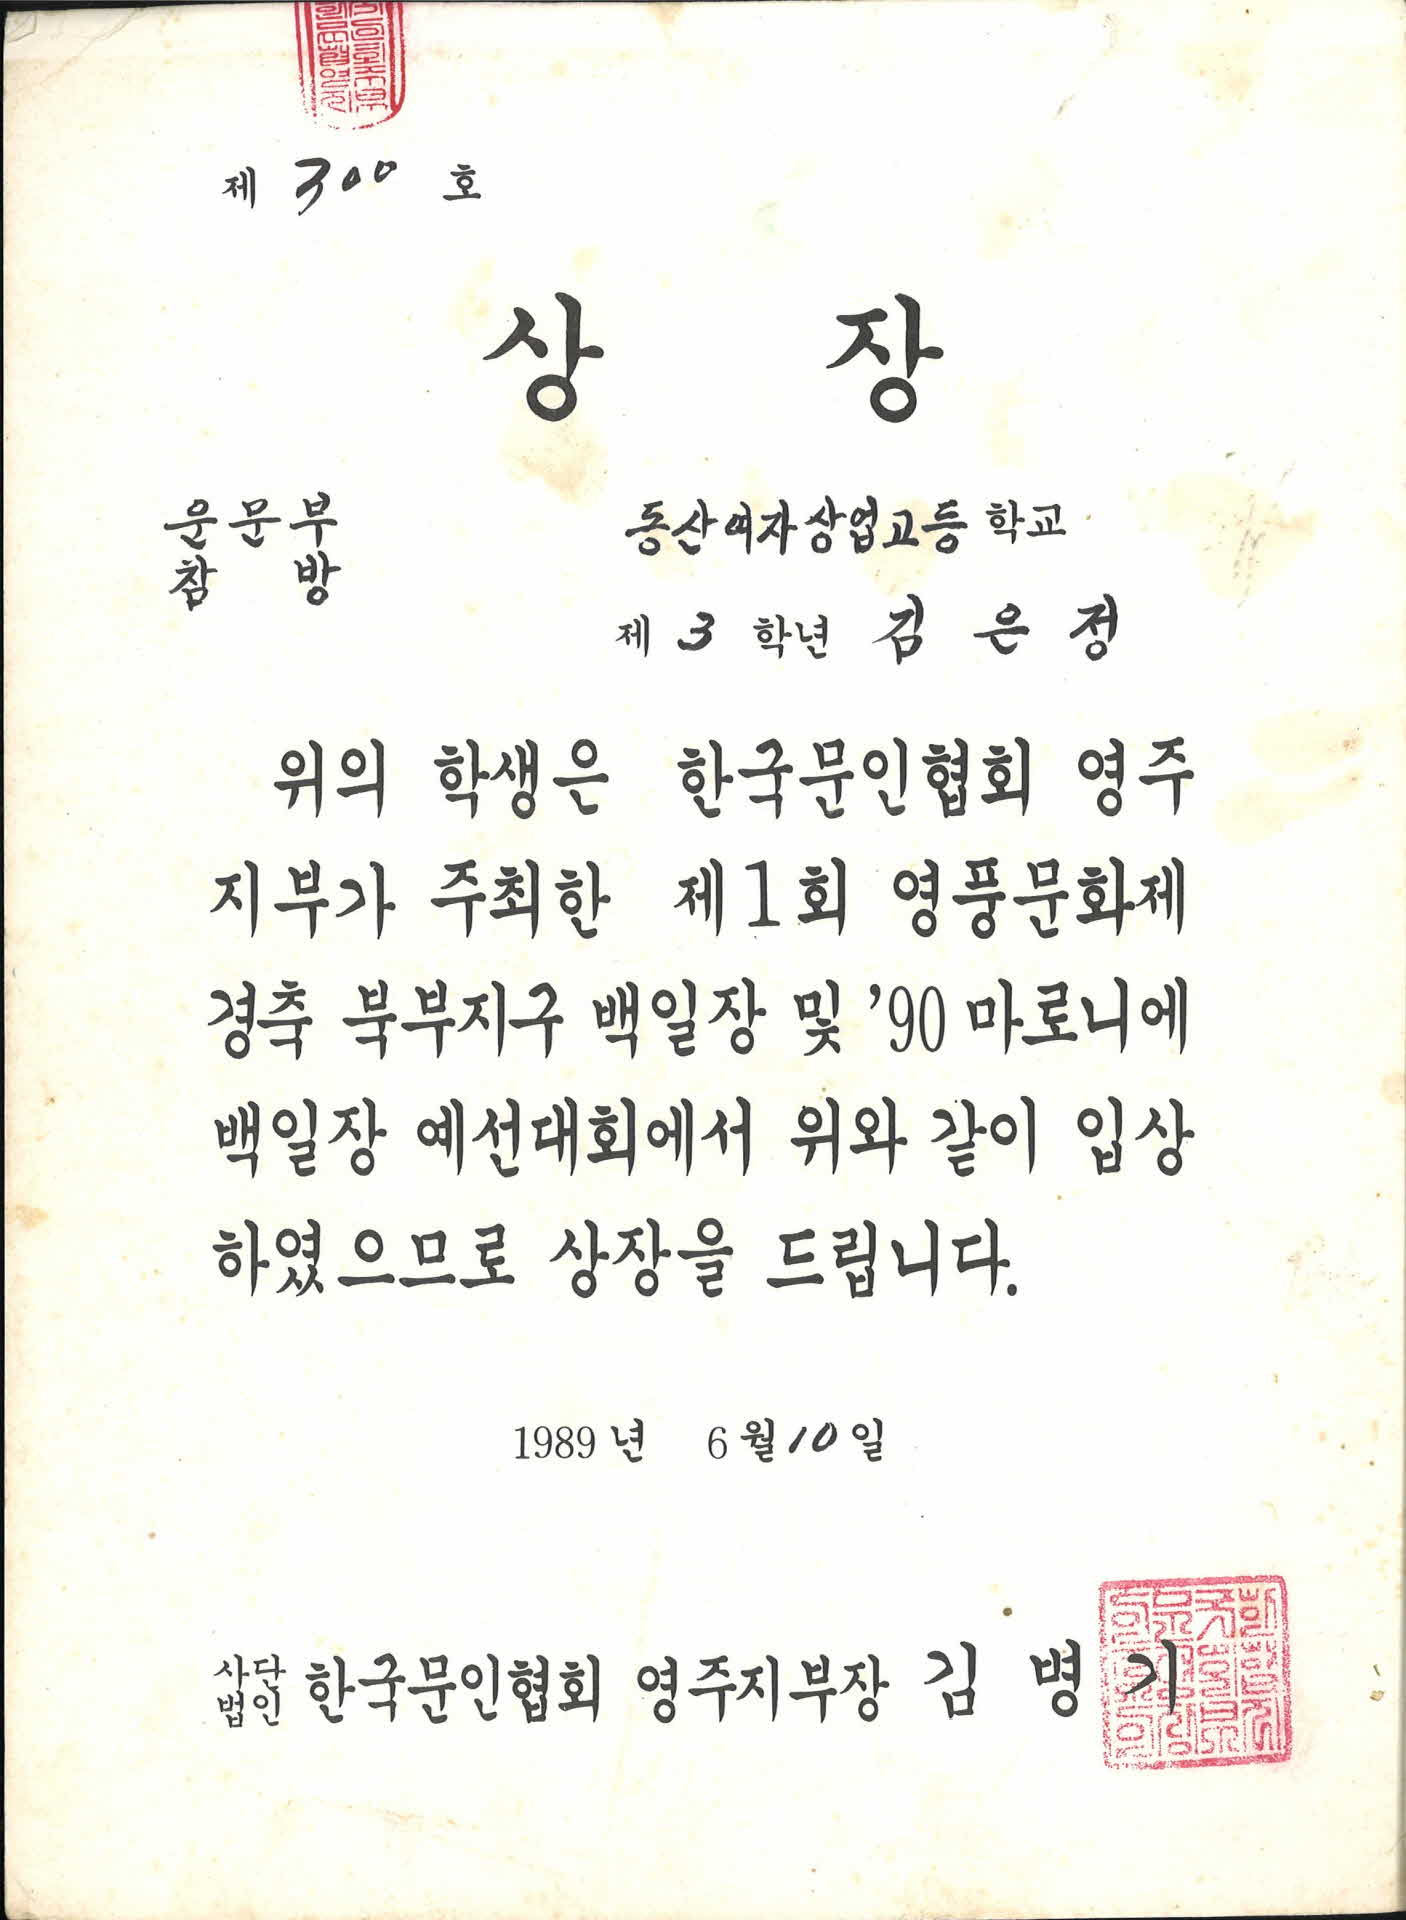 제 300 호
상 장
운문부
참 방
동산여자상업고등 학교
제 3 학년 김 은 정
위의 학생은 한국문인협회 영주
지부가 주최한 제1회 영풍문화제
경축 북부지구 백일장 및 '90 마로니에
백일장 예선대회에서 위와 같이 입상
하였으므로 상장을 드립니다.
1989 년 6 월 10 일
사단
법인 한국문인협회 영주지부장 김 병 기